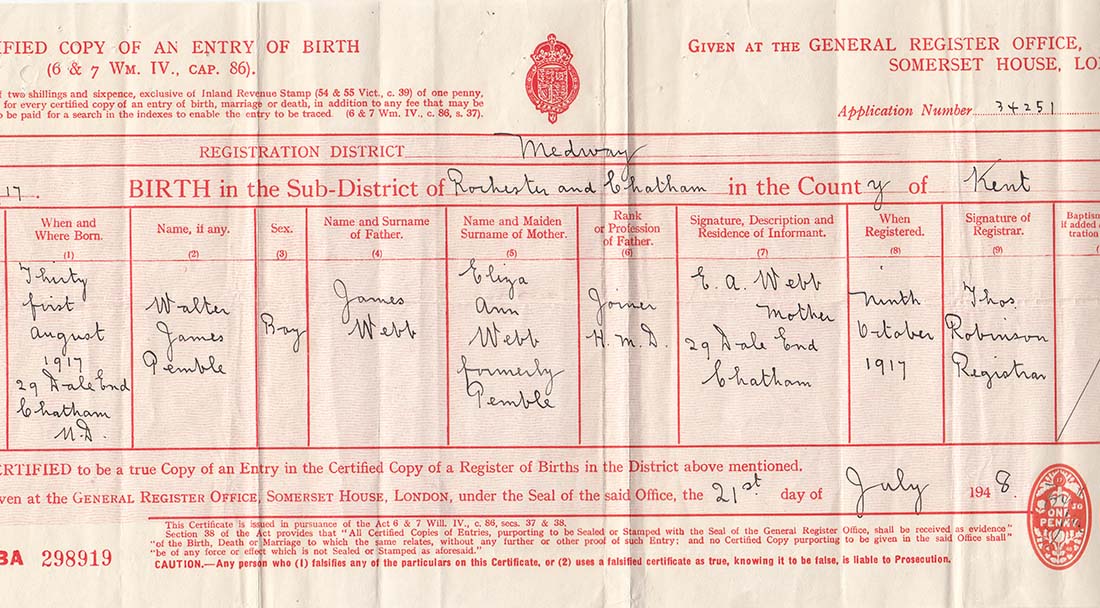 IFIED COPY OF AN ENTRY OF BIRTH
(6 & 7 WM. IV., CAP. 86).
GIVEN AT THE GENERAL REGISTER OFFICE,
SOMERSET HOUSE, LO
f two shillings and sixpence, exclusive of Inland Revenue Stamp (54 & 55 Vict., c. 39) of one penny,
for every certified copy of an entry of birth, marriage or death, in addition to any fee that may
be paid for a search in the indexes to enable the entry to be traced. (6 & 7 Wm. IV., c. 86, s. 37).
Application Number 34251
REGISTRATION DISTRICT Medway
17. BIRTH in the Sub-District of Rochester and Chatham in the County of Kent
When and
Where Born.
(1)
Name, if any.
(2)
Sex.
(3)
Name and Surname
of Father.
(4)
Name and Maiden
Surname of Mother.
(5)
Rank
or Profession
of Father.
(6)
Signature, Description and
Residence of Informant.
(7)
When
Registered.
(8)
Signature of
Registrar.
(9)
Baptis
if added a
tration
Thirty
first
August
1917
29 Dale End
Chatham
U.D.
Walter
James
Pemble
Boy
James
Webb
Eliza
Ann
Webb
formerly
Pemble
Joiner
H.M.D.
E. A. Webb
Mother
29 Dale End
Chatham
Ninth
October
1917
Thos.
Robinson
Registrar
CERTIFIED to be a true Copy of an Entry in the Certified Copy of a Register of Births in the District above mentioned.
iven at the GENERAL REGISTER OFFICE, SOMERSET HOUSE, LONDON, under the Seal of the said Office, the 21st day of July 1948.
This Certificate is issued in pursuance of the Act 6 & 7 Will. IV., c. 86, secs. 37 & 38.
Section 38 of the Act provides that "All Certified Copies of Entries, purporting to be Sealed or Stamped with the Seal of the General Register Office, shall be received as evidence"
"of the Birth, Death or Marriage to which the same relates, without any further or other proof of such Entry: and no Certified Copy purporting to be given in the said Office shall"
"be of any force or effect which is not Sealed or Stamped as aforesaid."
CAUTION.—Any person who (1) falsifies any of the particulars on this Certificate, or (2) uses a falsified certificate as true, knowing it to be false, is liable to Prosecution.
BA 298919
ONE
PENNY